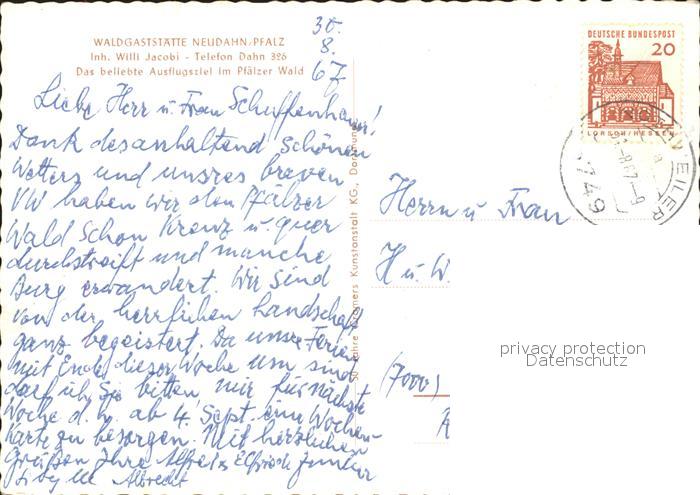 WALDGASTSTÄTTE NEUDAHN/PFALZ
Inh. Willi Jacobi - Telefon Dahn 326
Das beliebte Ausflugsziel im Pfälzer Wald
30.
8.
67
Liebe Herr u. Frau Scheffenhauer!
Dank des anhaltend schönen
Wetters und unsres braven
VW haben wir den Pfälzer
Wald schon Kreuz u. quer
durchstreift und manche
Burg erwandert. Wir sind
von der herrlichen Landschaft
ganz begeistert. Da unsre Ferien
mit Ende dieser Woche um sind
darf ich Sie bitten, mir für nächste
Woche d. h. ab 4. Sept. eine Wochen-
Karte zu besorgen. Mit herzlichen
Grüßen Ihre Alfred u. Elfriede
Albrecht
50 Jahre Krämers Kunstanstalt KG., Dortmund
DEUTSCHE BUNDESPOST
20
LORSCH/HESSEN
WEILER
-8.67-9
6749
Herrn u. Frau
H u. W.
(7000)
privacy protection
Datenschutz